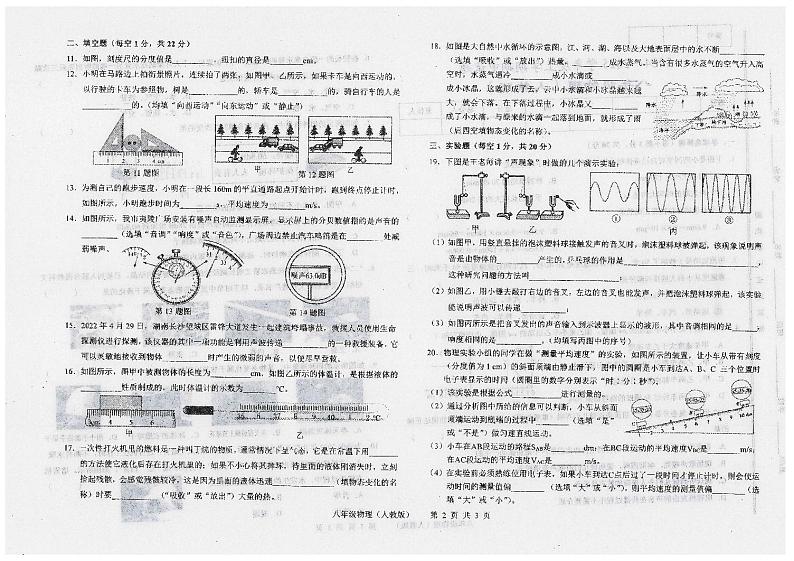 二、填空题（每空 1 分，共 22 分）
11. 如图，刻度尺的分度值是________，纽扣的直径是________cm。
12. 小明在马路边上拍街景照片，连续拍了两张，如图甲、乙所示，如果卡车是向西运动的，
以行驶的卡车为参照物，树是________的，轿车是________的，骑自行车的人是
________的。（均填"向西运动""向东运动"或"静止"）
第 11 题图
甲
乙
第 12 题图
13. 为测自己的跑步速度，小明在一段长 160m 的平直道路起点开始计时，跑到终点停止计时，
如图所示，小明跑步时间为________s，平均速度为________m/s。
14. 如图所示，我市夷陵广场安装有噪声自动监测显示屏，显示屏上的分贝数值指的是声音的
________（选填"音调""响度"或"音色"），广场周边禁止汽车鸣笛是在________处减
弱噪声。
噪声63.0dB
第 13 题图
第 14 题图
15. 2022 年 4 月 29 日，湖南长沙望城区雷锋大道发生一起建筑垮塌事故，救援人员使用生命
探测仪进行探测，该仪器的其中一项功能是利用声波传递________的一种救援装备，它
可以灵敏地接收到物体________时产生的微弱的声音，以便尽早营救。
16. 如图所示，图甲中被测物体的长度为________cm，如图乙所示的体温计，是根据液体的
________性质制成的，此时体温计的示数为________℃。
甲
乙
17. 一次性打火机里的燃料是一种叫丁烷的物质，通常情况下呈气态，它是在常温下用________
的方法使它液化后存在打火机里的；如果不小心将其摔坏，待里面的液体刚消失时，立刻
拾起残骸，会感觉残骸较冷，这是因为里面的液体迅速________（填物态变化的名
称）时要________（"吸收"或"放出"）大量的热。
18. 如图是大自然中水循环的示意图，江、河、湖、海以及大地表面层中的水不断________
（选填"吸收"或"放出"）热量，________成水蒸气，当含有很多水蒸气的空气升入高
空时，水蒸气遇冷________成小水滴或________
成小冰晶，这就形成了云，云中小水滴和小冰晶越来越
大，就会下落，在下落过程中，小冰晶又________
成了小水滴，与原来的水滴一起落到地面，就形成了雨
（后四空填物态变化的名称）。
降水
三、实验题（每空 1 分，共 20 分）
19. 下图是王老师讲"声现象"时做的几个演示实验：
① ② ③
甲
乙
丙
（1）如图甲，用竖直悬挂的泡沫塑料球接触发声的音叉时，泡沫塑料球被弹起，该现象说明声
音是由物体的________产生的，乒乓球的作用是________，
这种研究问题的方法叫________；
（2）如图乙，用小锤去敲打右边的音叉，左边的音叉也能发声，并把泡沫塑料球弹起，该实验
能说明声波可以传递________；
（3）如图丙所示是把音叉发出的声音输入到示波器上显示的波形，其中音调相同的是________，
响度相同的是________。（均填写丙图中的序号）
20. 物理实验小组的同学在做"测量平均速度"的实验，如图所示的装置，让小车从带有刻度
（分度值为 1 cm）的斜面顶端由静止滑下，图中的圆圈是小车到达A、B、C 三个位置时
电子表显示的时间（圆圈里的数字分别表示"时：分：秒"）。
（1）该实验是根据公式________进行测量的。
（2）通过分析图中所给的信息可以判断，小车从斜面
顶端运动到底端的过程中________（选填"是"
或"不是"）做匀速直线运动。
（3）小车在AB段运动的路程SAB是________dm；在BC段运动的平均速度VBC是________m/s，
在AC段运动的平均速度VAC是________m/s。
（4）在实验前必须熟练使用电子表，如果小车到达C点后过了一段时间才停止计时，则会使运
动时间的测量值偏________（选填"大"或"小"），则平均速度的测量值偏________（选
填"大"或"小"）。
八年级物理（人教版）
第 2 页 共 3 页